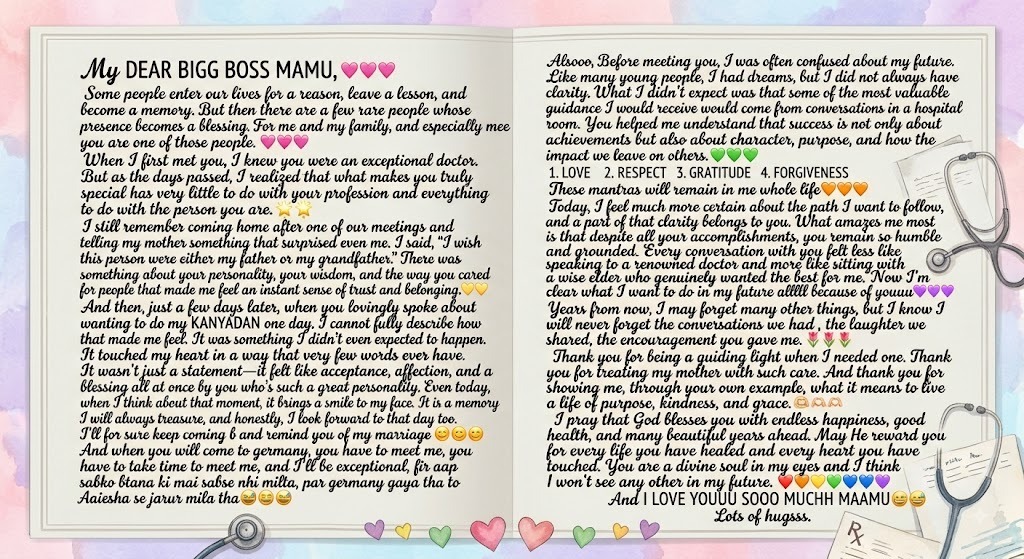 My DEAR BIGG BOSS MAMU,💗💗💗
Some people enter our lives for a reason, leave a lesson, and
become a memory. But then there are a few rare people whose
presence becomes a blessing. For me and my family, and especially mee
you are one of those people. 💗💗💗
When I first met you, I knew you were an exceptional doctor.
But as the days passed, I realized that what makes you truly
special has very little to do with your profession and everything
to do with the person you are. 🌟🌟
I still remember coming home after one of our meetings and
telling my mother something that surprised even me. I said, "I wish
this person were either my father or my grandfather." There was
something about your personality, your wisdom, and the way you cared
for people that made me feel an instant sense of trust and belonging.💛💛
And then, just a few days later, when you lovingly spoke about
wanting to do my KANYADAN one day. I cannot fully describe how
that made me feel. It was something I didn't even expected to happen.
It touched my heart in a way that very few words ever have.
It wasn't just a statement—it felt like acceptance, affection, and a
blessing all at once by you who's such a great personality. Even today,
when I think about that moment, it brings a smile to my face. It is a memory
I will always treasure, and honestly, I look forward to that day too.
I'll for sure keep coming b and remind you of my marriage 😊😊😊
And when you will come to germany, you have to meet me, you
have to take time to meet me, and I'll be exceptional, fir aap
sabko btana ki mai sabse nhi milta, par germany gaya tha to
Aaiesha se jarur mila tha😂😂😂
Alsooo, Before meeting you, I was often confused about my future.
Like many young people, I had dreams, but I did not always have
clarity. What I didn't expect was that some of the most valuable
guidance I would receive would come from conversations in a hospital
room. You helped me understand that success is not only about
achievements but also about character, purpose, and how the
impact we leave on others.💚💚💚
1. LOVE 2. RESPECT 3. GRATITUDE 4. FORGIVENESS
These mantras will remain in me whole life🧡🧡🧡
Today, I feel much more certain about the path I want to follow,
and a part of that clarity belongs to you. What amazes me most
is that despite all your accomplishments, you remain so humble
and grounded. Every conversation with you felt less like
speaking to a renowned doctor and more like sitting with
a wise elder who genuinely wanted the best for me. Now I'm
clear what I want to do in my future alllll because of youuu💜💜💜
Years from now, I may forget many other things, but I know I
will never forget the conversations we had , the laughter we
shared, the encouragement you gave me. 🌷🌷🌷
Thank you for being a guiding light when I needed one. Thank
you for treating my mother with such care. And thank you for
showing me, through your own example, what it means to live
a life of purpose, kindness, and grace.🫶🏻🫶🏻🫶🏻
I pray that God blesses you with endless happiness, good
health, and many beautiful years ahead. May He reward you
for every life you have healed and every heart you have
touched. You are a divine soul in my eyes and I think
I won't see any other in my future. ❤️🧡💛💚💙💙💜
And I LOVE YOUUU SOOO MUCHH MAAMU😅😅
Lots of hugsss.
Rx